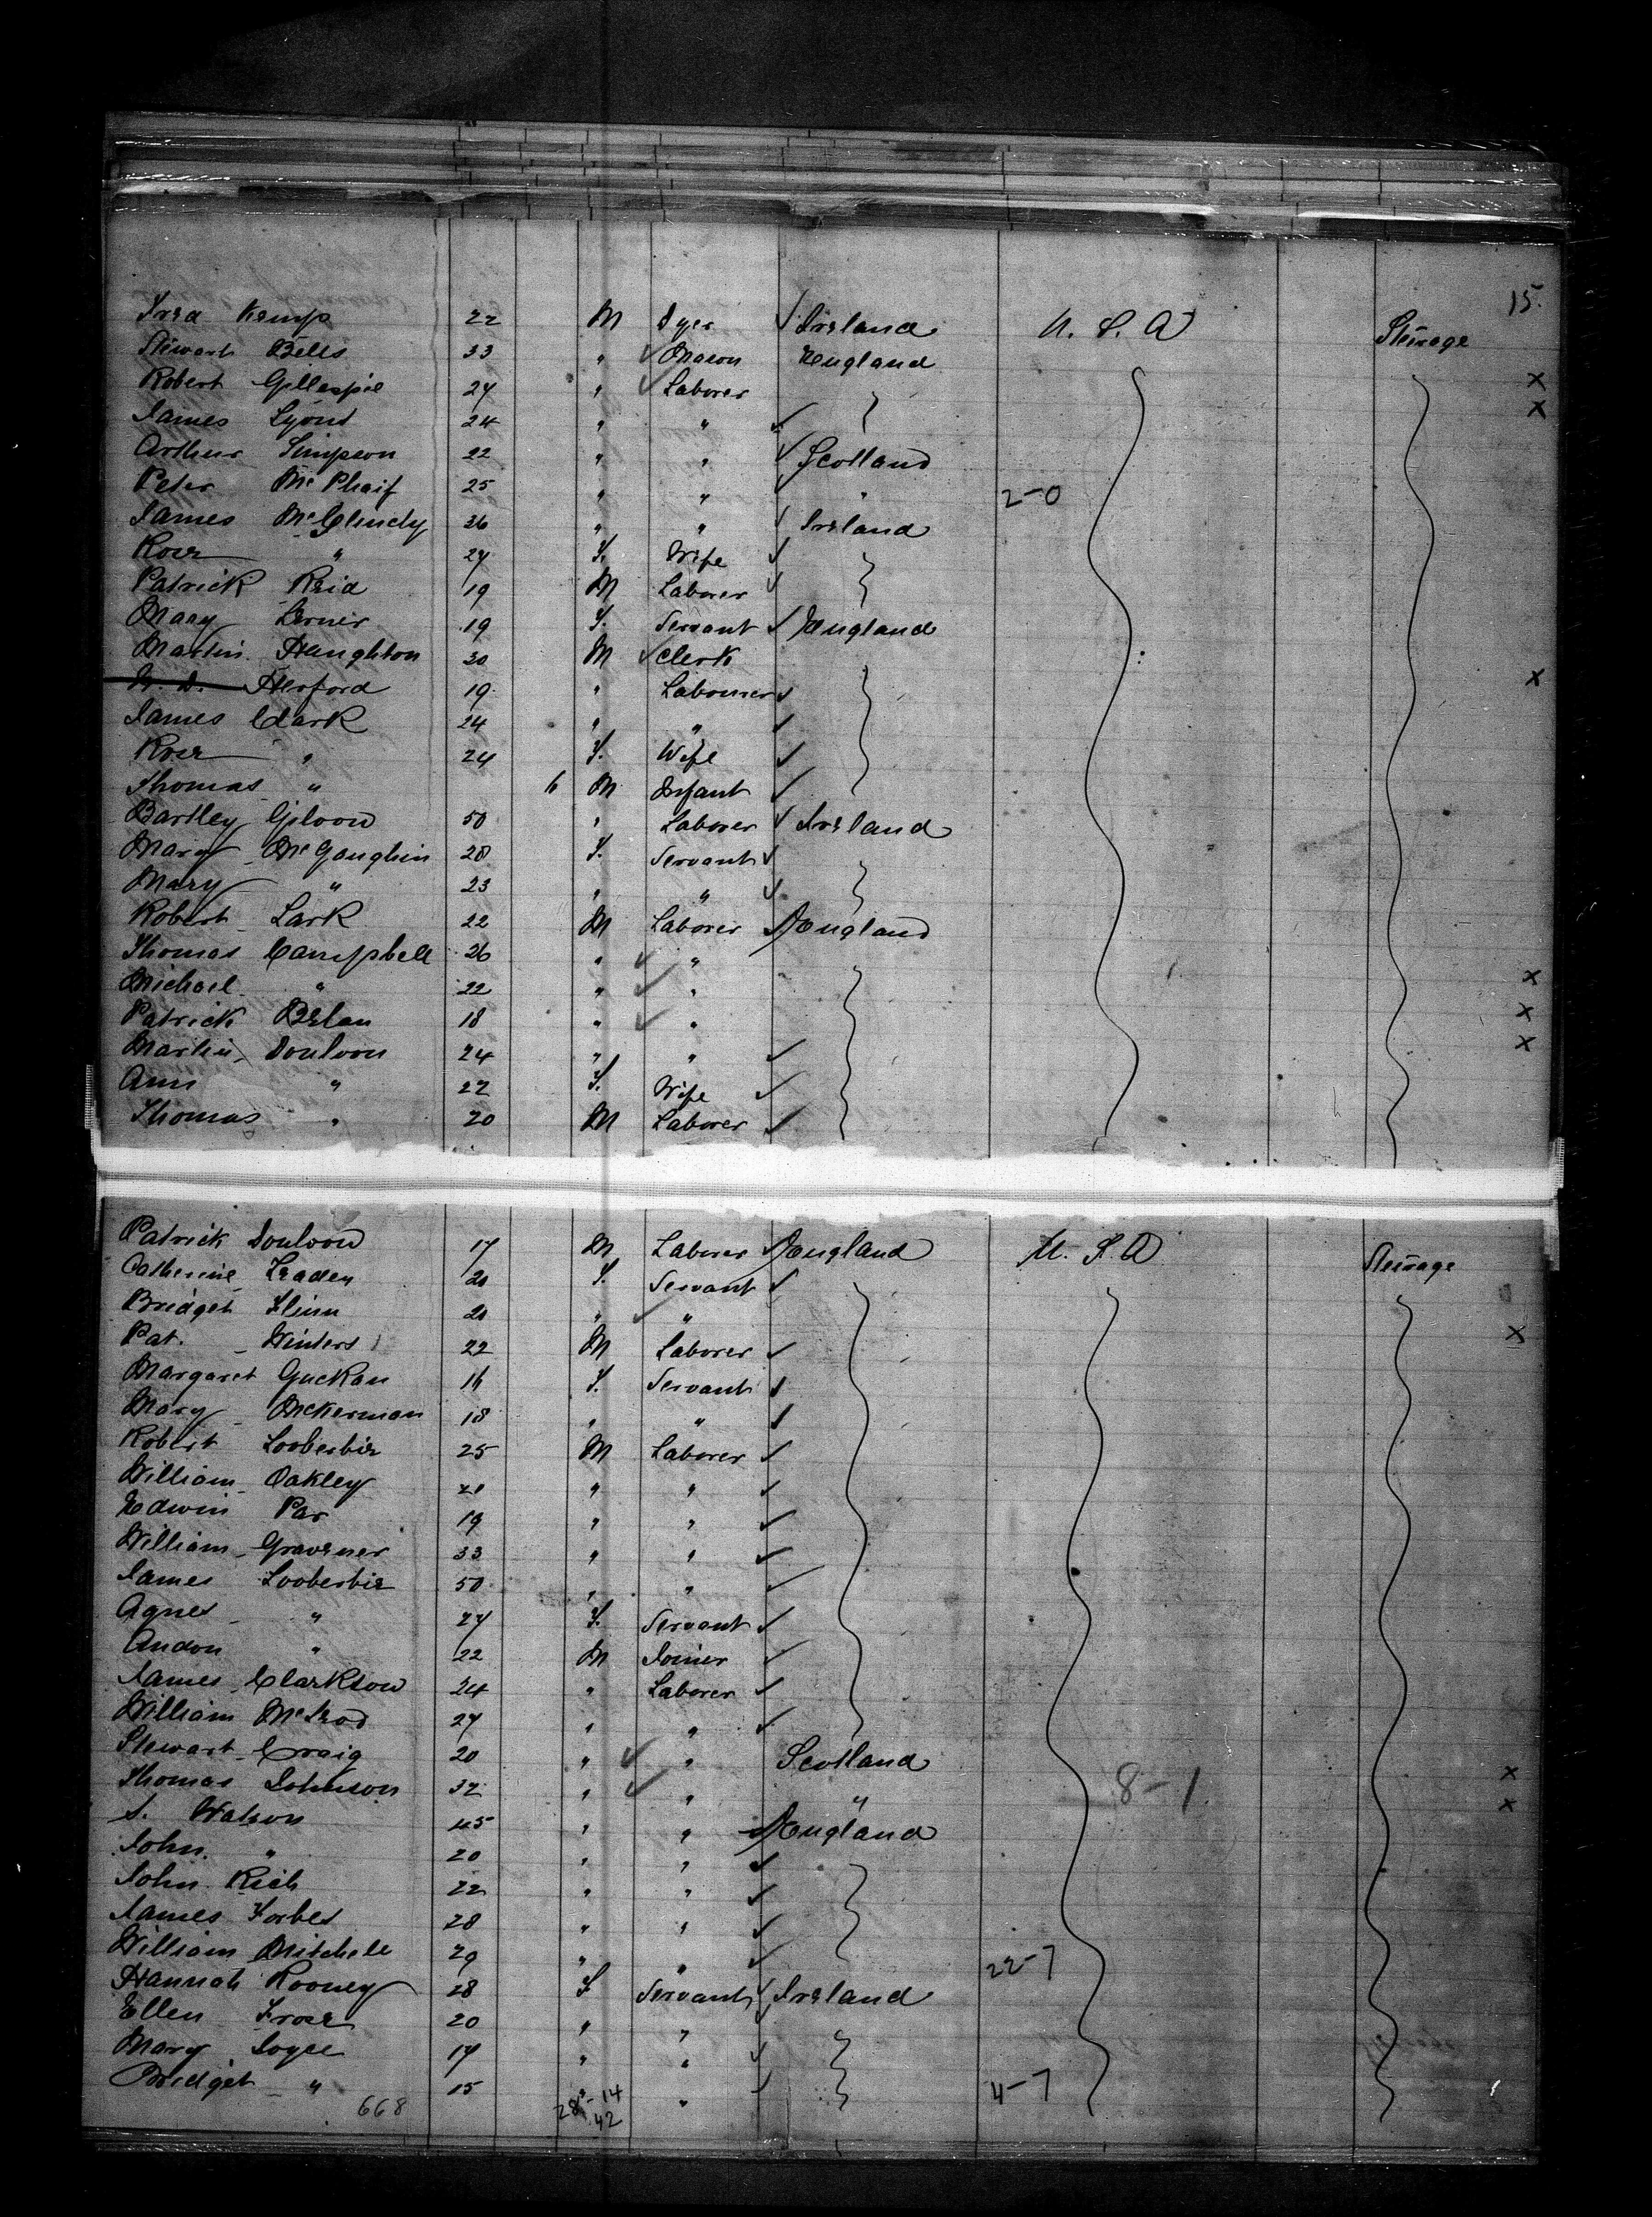 15.
Fred Kemp 22 M Dyer ✓ Ireland U. S. A Steerage
Stewart Bells 33 " ✓ Mason England
Robert Gillespie 24 " ✓ Laborer x
James Lyons 24 " " ✓ x
Arthur Simpson 22 " " ✓ Scotland
Peter Mc Phaif 25 " " ✓ " 2-0
James McClindy 26 " " ✓ Ireland
Rose " 24 F. Wife ✓
Patrick Reid 19 M Laborer ✓
Mary Lernier 19 F. Servant ✓ England
Martin Haughton 30 M ✓ Clerk
Herford 19 " Labourer ✓ x
James Clark 24 " " ✓
Rose " 24 F. Wife ✓
Thomas " 6 M Infant ✓
Bartley Giloon 50 " Laborer ✓ Ireland
Mary McGaughin 20 F. Servant ✓
Mary " 23 " " ✓
Robert Lark 22 M Laborer ✓ England
Thomas Campbell 26 " ✓ "
Michael " 22 " ✓ " x
Patrick Belan 18 " ✓ " x
Martin Donloon 24 " " ✓ x
Ann " 22 F. Wife ✓
Thomas " 20 M Laborer ✓
Patrick Donloon 17 M Laborer ✓ England U. S. A Steerage
Catherine Leaden 20 F. Servant ✓
Bridget Flinn 20 " ✓ "
Pat. Winters 22 M Laborer ✓ x
Margaret Guckan 16 F. Servant ✓
Mary McKerman 18 " " ✓
Robert Looberbie 25 M Laborer ✓
William Oakley 21 " " ✓
Edwin Par 19 " " ✓
William Gravener 33 " " ✓
James Looberbie 50 " " ✓
Agnes " 24 F. Servant ✓
Andon " 22 M Joiner ✓
James Clarkson 24 " Laborer ✓
William McLeod 27 " " ✓
Stewart Craig 20 " ✓ " Scotland x
Thomas Johnson 32 " ✓ " " 8-1 x
S. Watson 45 " " ✓ England
John " 20 " " ✓
John Rich 22 " " ✓
James Forbes 28 " " ✓
William Mitchell 29 " " ✓ 22-7
Hannah Rooney 28 F Servant ✓ Ireland
Ellen Frose 20 " " ✓
Mary Joyce 17 " " ✓
Bridget " 15 " " ✓ 4-7
668 28-14
42